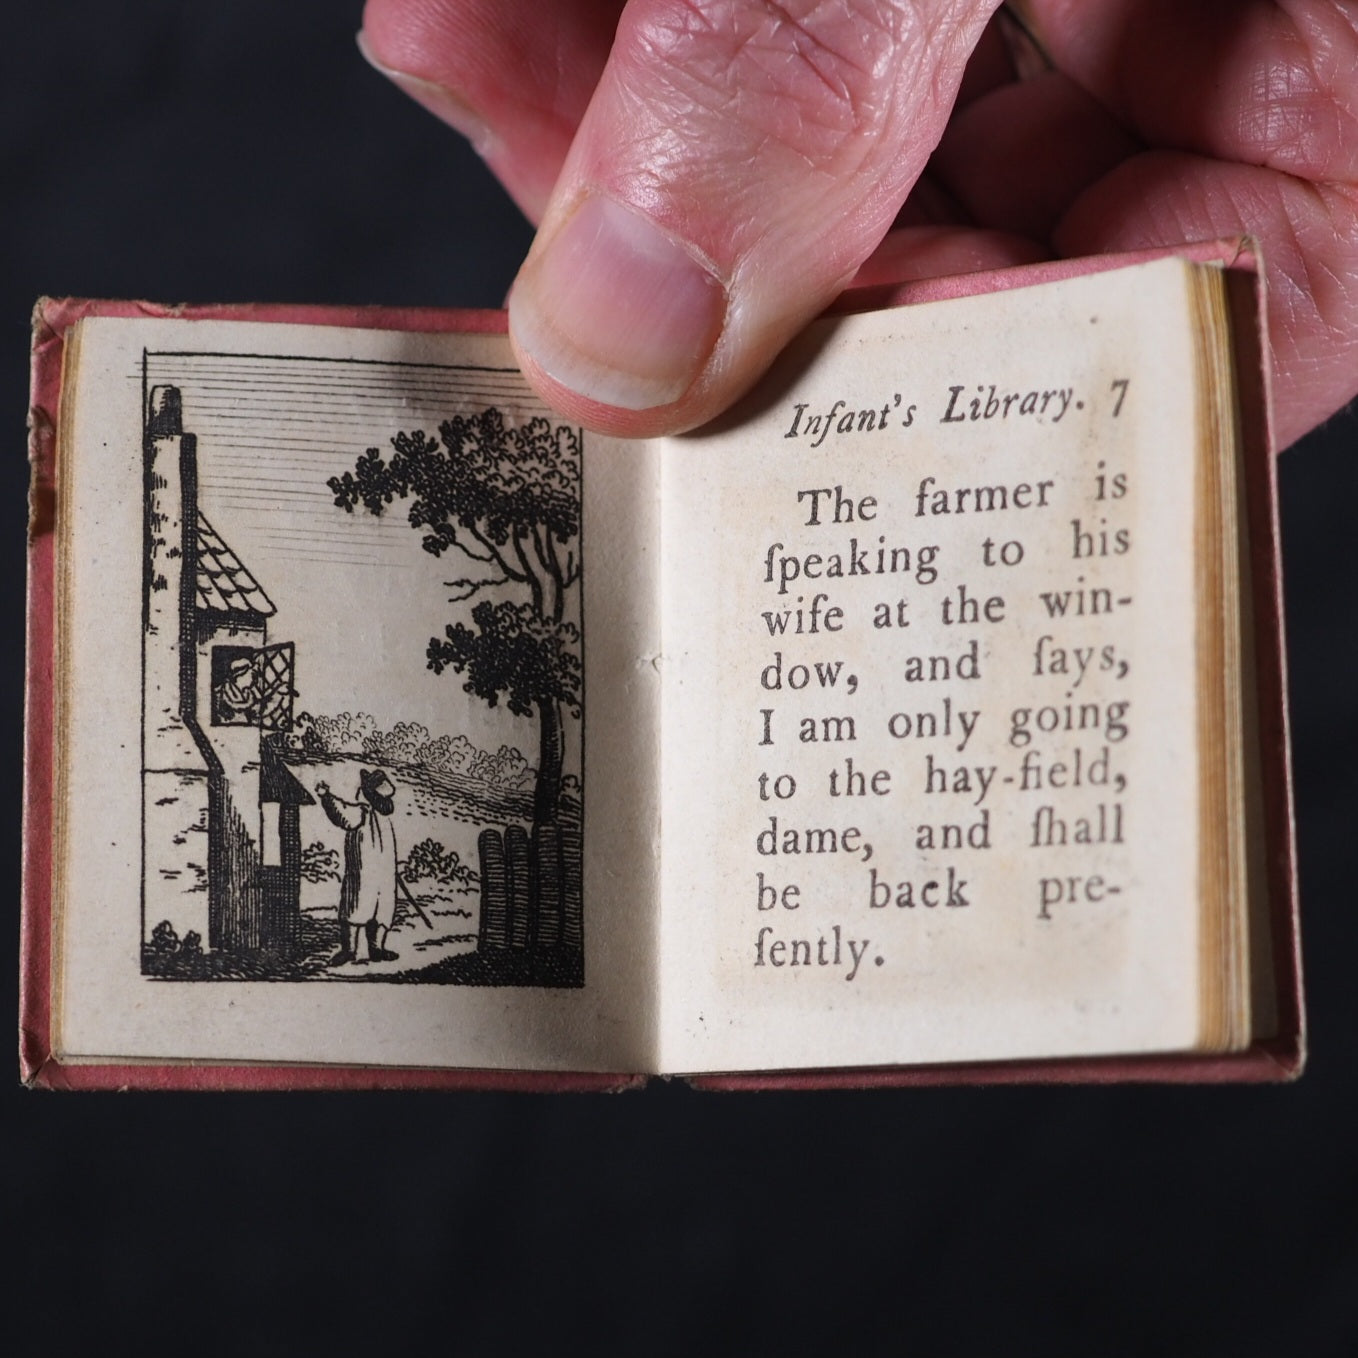 Infant's Library. 7
The farmer is
ſpeaking to his
wife at the win-
dow, and ſays,
I am only going
to the hay-field,
dame, and ſhall
be back pre-
ſently.